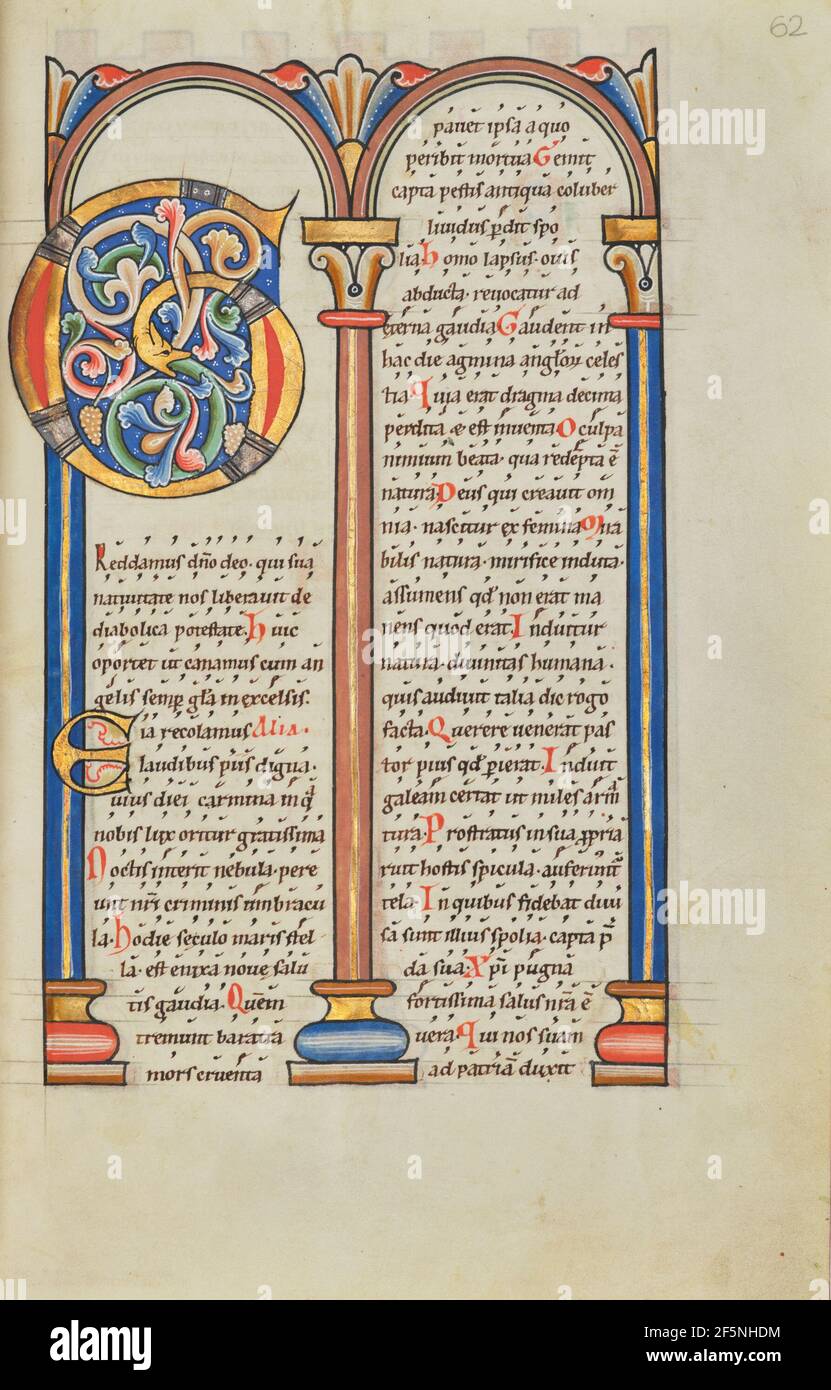 62
G
Reddamus dño deo· qui sua
natiuitate nos liberauit de
diabolica potestate· huic
oportet ut canamus cum an
gelis semp gła in excelsis.
Eia recolamus Alia·
laudibus piis digna·
uius diei carmina in q̃
nobis lux oritur gratissima
Noctis interit nebula· pere
unt nr̃i criminis umbracu
la· hodie seculo maris stel
la· est enixa noue salu
tis gaudia· Quem
tremunt baratra
mors cruenta
pauet ipsa a quo
peribit mortua Gemit
capta pestis antiqua coluber
liuidus pdit spo
lia· homo lapsus· ouis
abducta· reuocatur ad
eterna gaudia Gaudent in
hac die agmina angłoꝝ celes
tia Quia erat dragma decima
perdita & est inuenta O culpa
nimium beata· qua redẽpta ẽ
natura· Deus qui creauit om
nia· nascitur ex femina Mira
bilis natura· mirifice induta·
assumens qđ non erat ma
nens quod erat· Induitur
natura· diuinitas humana·
quis audiuit talia dic rogo
facta· Querere uenerat pas
tor pius qđ pierat· Induit
galeam certat ut miles arma
tura· Prostratus in sua ppria
ruit hostis spicula· auferunt
tela· In quibus fidebat diui
sa sunt illius spolia· capta p̃
da sua· Xp̃i pugna
fortissima salus nr̃a ẽ
uera· Qui nos suam
ad patriã duxit
alamy
alamy
alamy
alamy
alamy
alamy
a
a
a
a
a
a
a
a
alamy
Image ID: 2F5NHDM
www.alamy.com